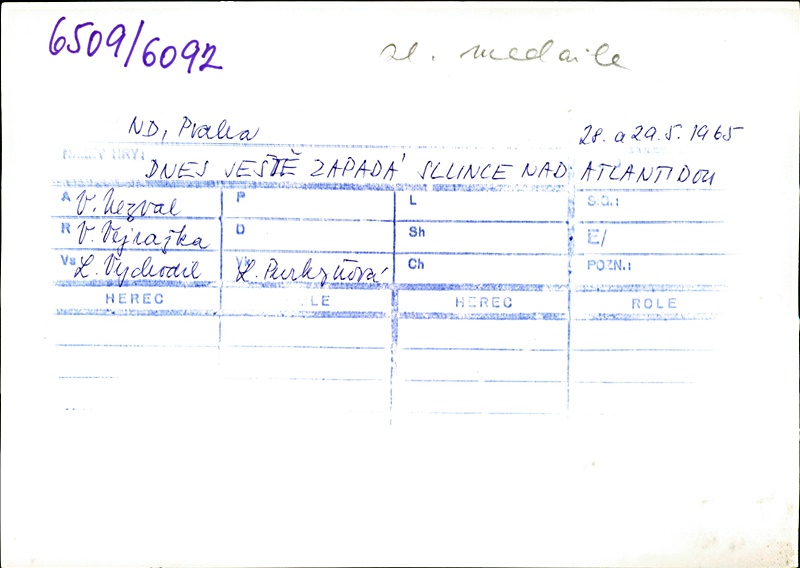 6509/6092
zl. medaile
ND, Praha 28. a 29.5.1965
NÁZEV HRY:
DNES JEŠTĚ ZAPADÁ SLUNCE NAD ATLANTIDOU
A V. Nezval P L S.Q.:
R V. Vejražka D Sh E/
Vs L. Vychodil L. Purkyňová Ch POZN.:
HEREC ROLE HEREC ROLE